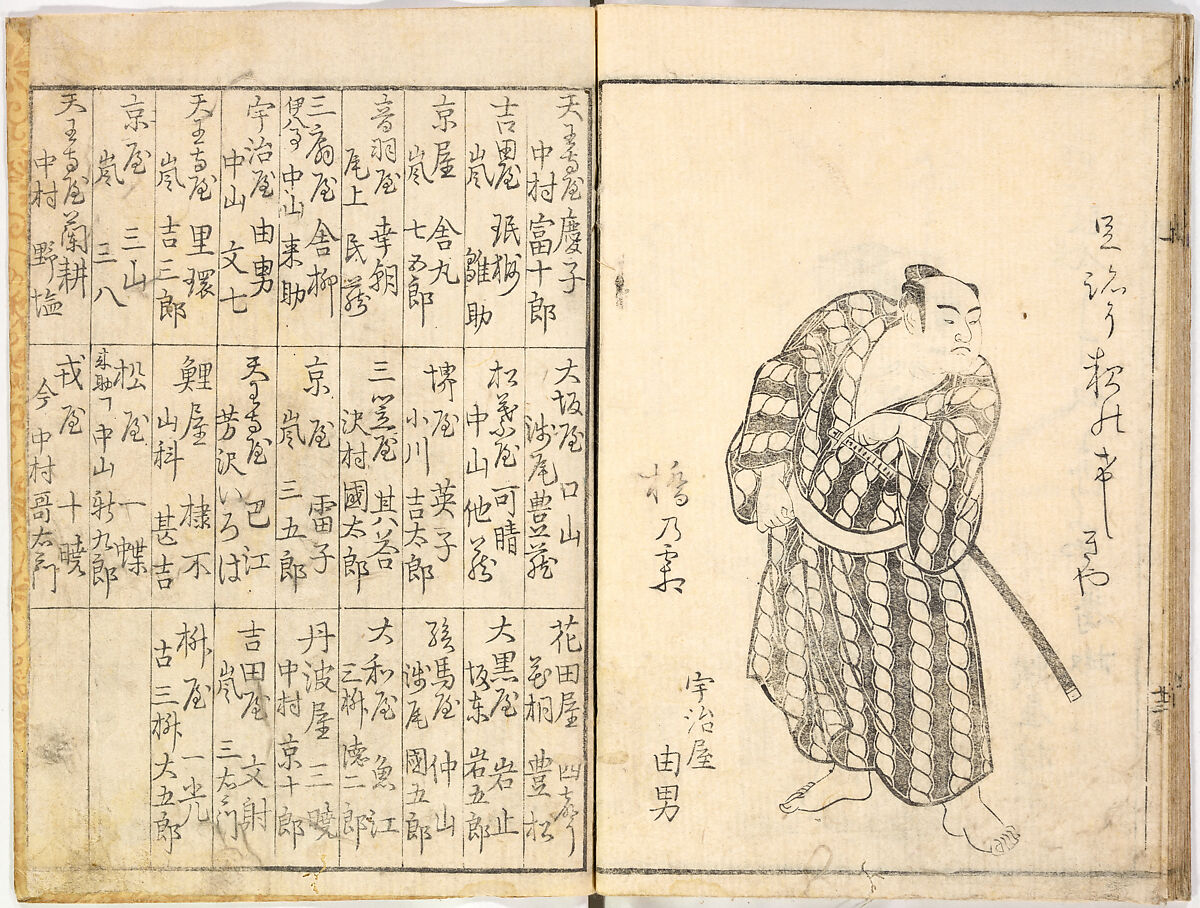 橋乃霜
宇治屋
由男
廿二
天王寺屋慶子
中村富十郎
吉田屋珉柳
嵐雛助
京屋舎丸
嵐七五郎
音羽屋幸朝
尾上民蔵
三扇屋舎柳
伊八事中山来助
宇治屋由男
中山文七
天王寺屋里環
嵐吉三郎
京屋三山
嵐三八
天王寺屋蘭耕
中村野塩
大坂屋口山
浅尾豊蔵
松葉屋可晴
中山他蔵
堺屋英子
小川吉太郎
三笠屋其答
沢村國太郎
京屋雷子
嵐三五郎
天王寺屋巴江
芳沢いろは
鯉屋棣不
山科甚吉
松屋一蝶
来助事中山新九郎
戎屋十暁
今中村哥右衛門
花田屋
花桐豊松
大黒屋岩止
坂東岩五郎
絵馬屋仲山
浅尾國五郎
大和屋魚江
三桝徳二郎
丹波屋三暁
中村京十郎
吉田屋文尉
嵐三右衛門
桝屋一光
古三桝大五郎